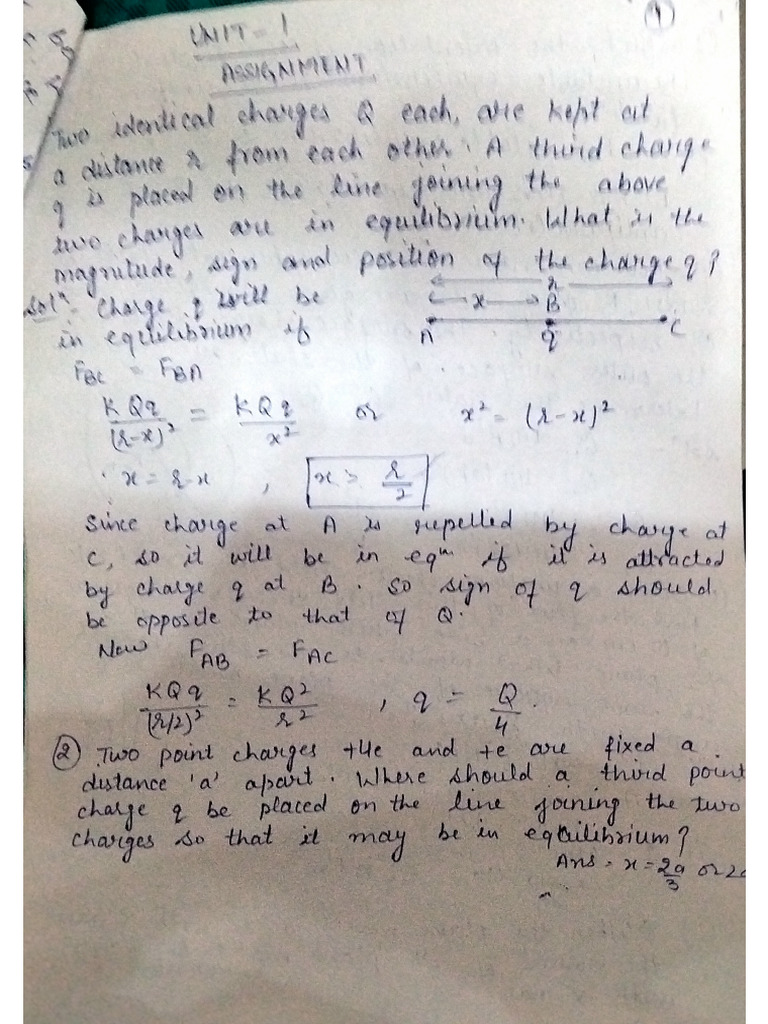 1
UNIT - 1
ASSIGNMENT
Two identical charges Q each, are kept at
a distance r from each other. A third charge
q is placed on the line joining the above
two charges are in equilibrium. What is the
magnitude, sign and position of the charge q?
Solⁿ - Charge q will be
in equilibrium if
r
x
B
A
q
C
F_BC = F_BA
KQq/(r-x)² = KQq/x² or x² = (r-x)²
x = r-x , x = r/2
Since charge at A is repelled by charge at
C, so it will be in eqᵐ if it is attracted
by charge q at B. So sign of q should
be opposite to that of Q.
Now F_AB = F_AC
KQq/(r/2)² = KQ²/r² , q = Q/4.
② Two point charges +4e and +e are fixed a
distance 'a' apart. Where should a third point
charge q be placed on the line joining the two
charges so that it may be in equilibrium?
Ans - x = 2a/3 or